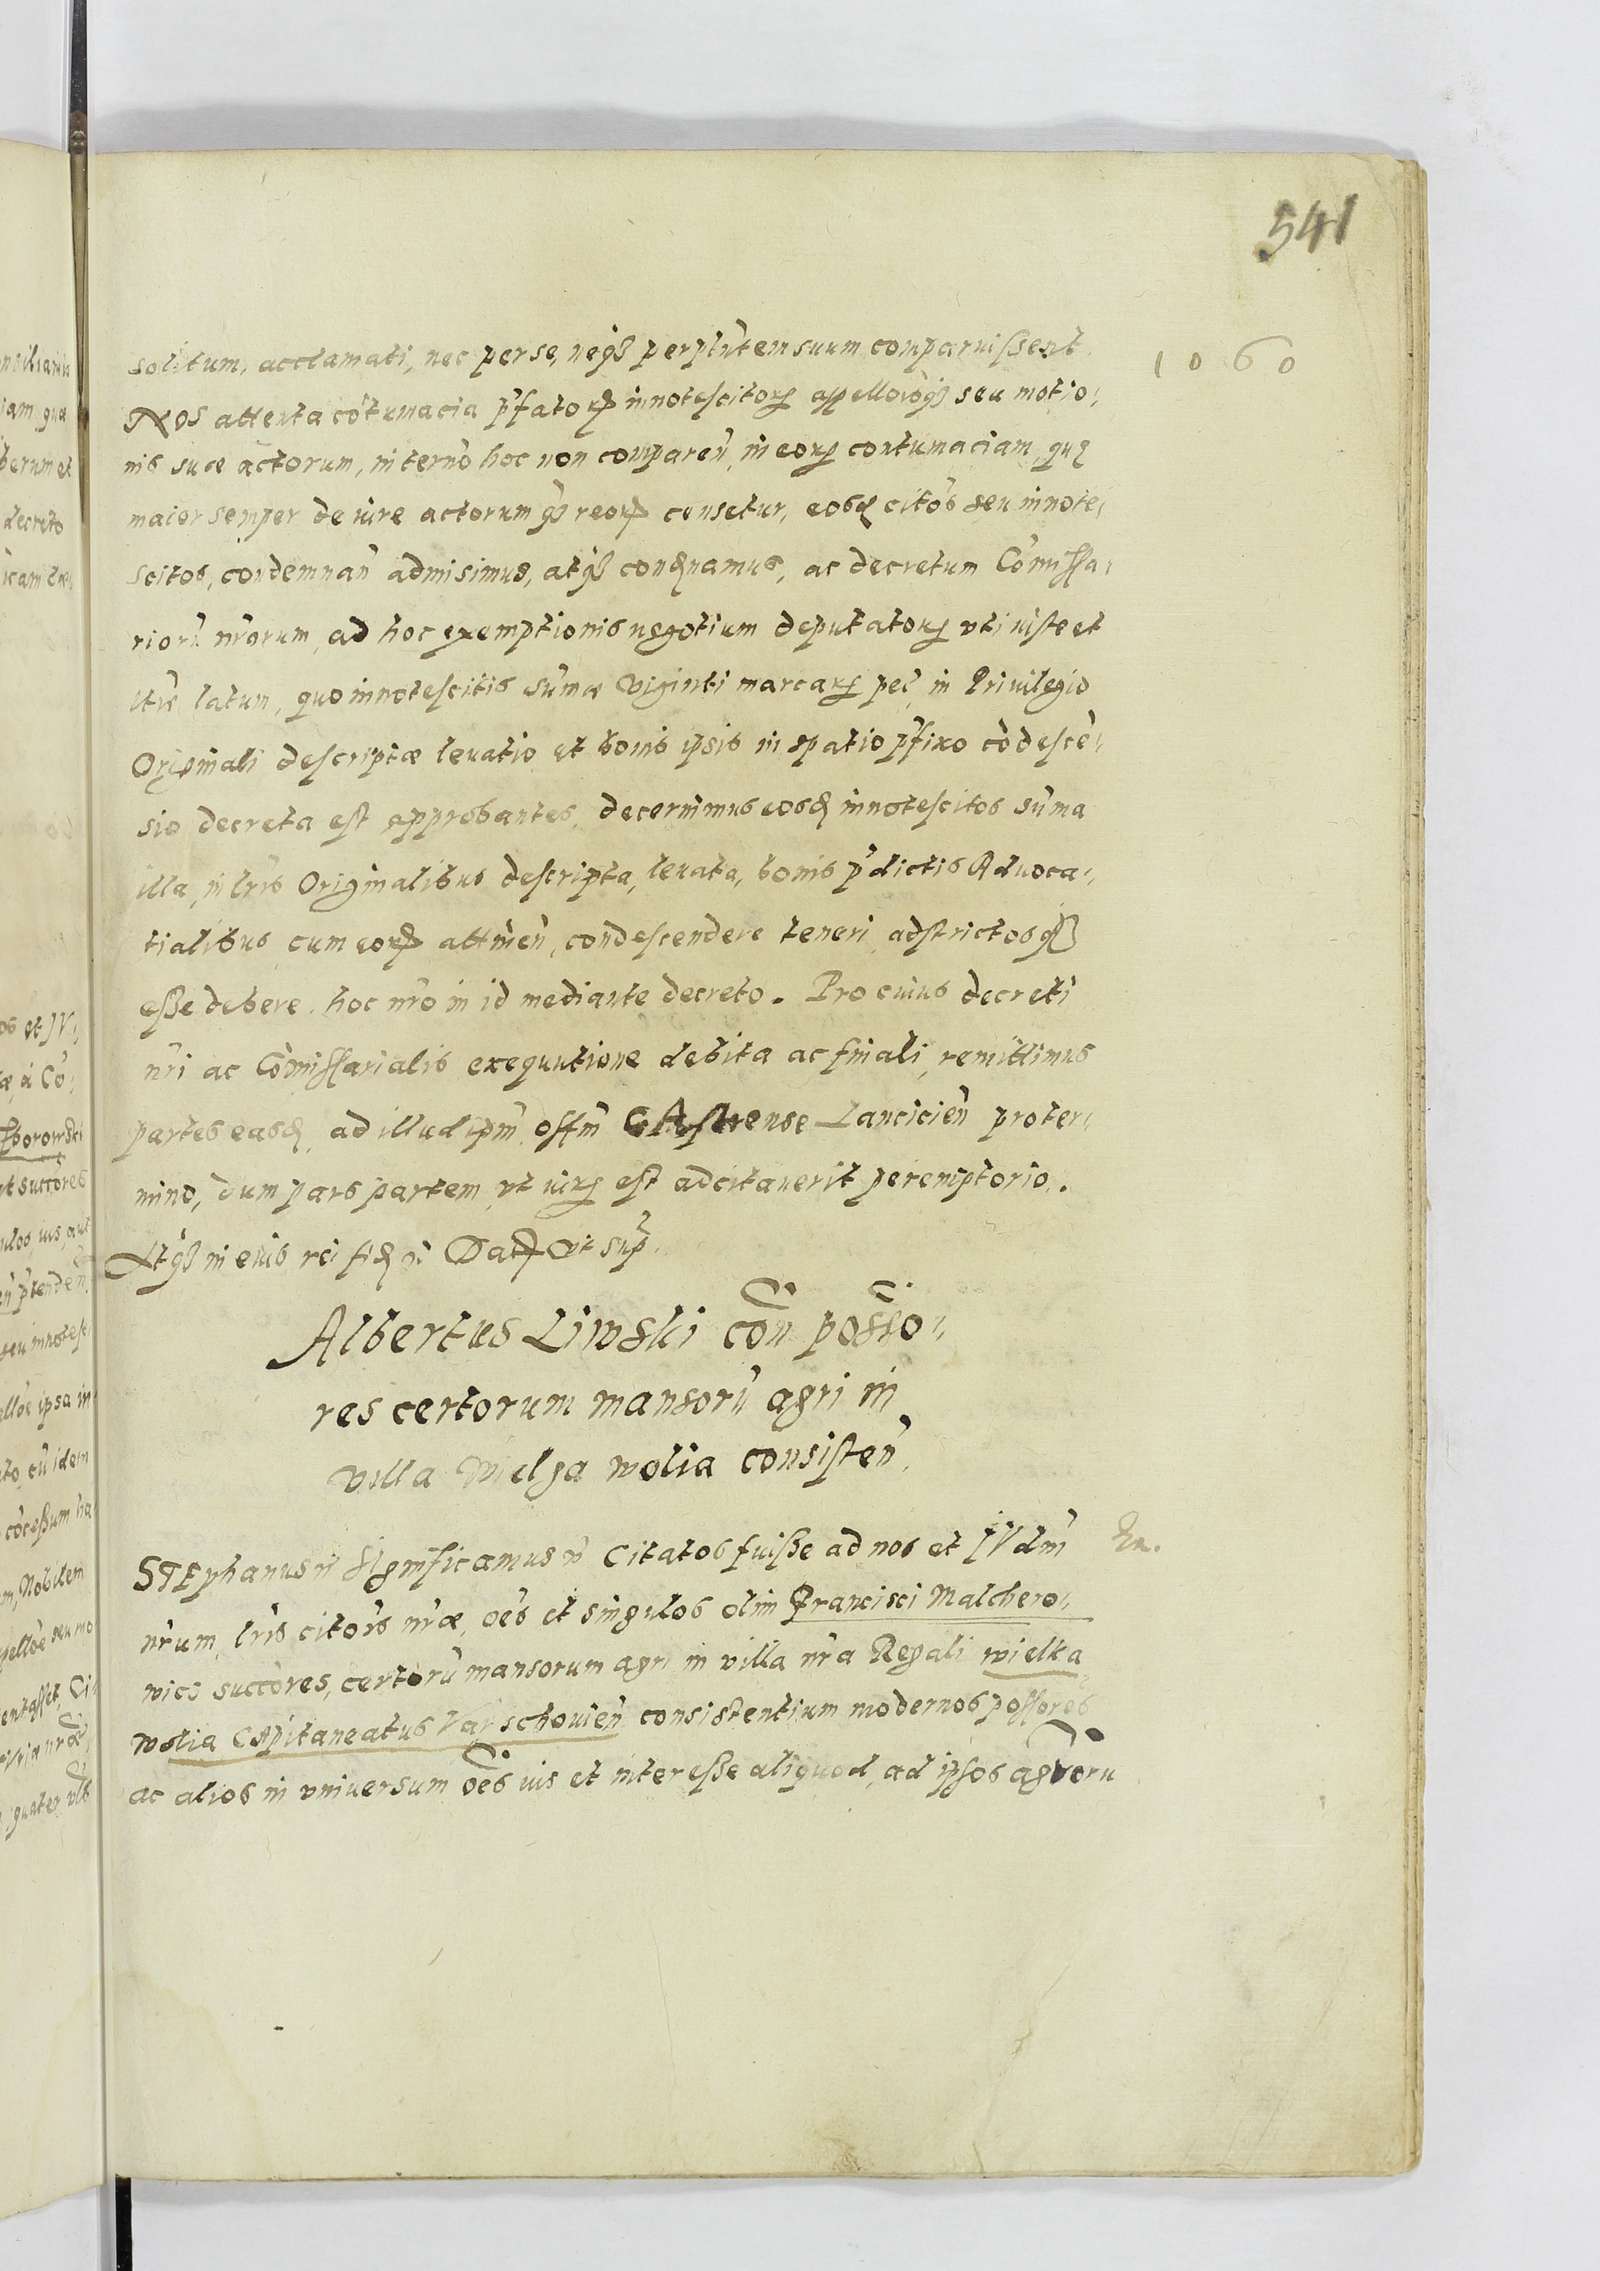 541
1060
solitum, acclamati, nec per se, neqȝ per plnt̃em suum comparuissent
NOS attenta cõtumacia p̃fatoꝝ innotescitoꝝ apelloĩsqȝ seu motio,,
nis suæ actorum, in terño hoc non compareñ, in eoꝝ contumaciam, quȩ
maior semper de iure actorum qȝ reoꝝ censetur, eosđ citõs seu innote,,
scitos, condemnañ admisimus, atqȝ conđnamus, ac decretum Cõmissa,,
riorũ nr̃orum, ad hoc exemptionis negotium deputatoꝝ vti iuste et
rite latum, quo innotescitis sum̃æ viginti marcaꝝ pec̃ in Priuilegio
Originali descriptæ leuatio et bonis ipsis in spatio p̃fixo cõdescẽ,,
sio decreta est approbantes, decernimus eosđ innotescitos sum̃a
illa, in lr̃is Originalibus descripta, leuata, bonis p̃dictis Aduoca,,
tialibus cum eoꝝ attineñ, condescendere teneri adstrictosqȝ
esse debere, hoc nr̃o in id mediante decreto. Pro cuius decreti
nr̃i ac Cõmissarialis exequutione debita ac finali, remittimus
partes easđ, ad illud ipm̃ offm̃ CAstrense Lancicieñ pro ter,,
mino, dum pars partem, vt iuꝝ est adcitauerit peremptorio.
Atqȝ in eius rei fiđ ñ Datꝫ vt sup̃.
Albertus Liwski coñ poss̃o,,
res certorum mansorũ agri in
villa Wielga wolia consisteñ.
STEphanus ñ Significamus ñ Citatos fuisse ad nos et IVdm̃
nr̃um, lr̃is citor̃is nr̃æ, oẽs et singulos olim Francisci Malchero,,
wicz succõres, certorũ mansorum agri in villa nr̃a Regali wielka
wolia CApitaneatus Varschouieñ consistentium modernos possores
ac alios in vniuersum oẽs ius et interesse aliquod, ad ipsos agrorũ